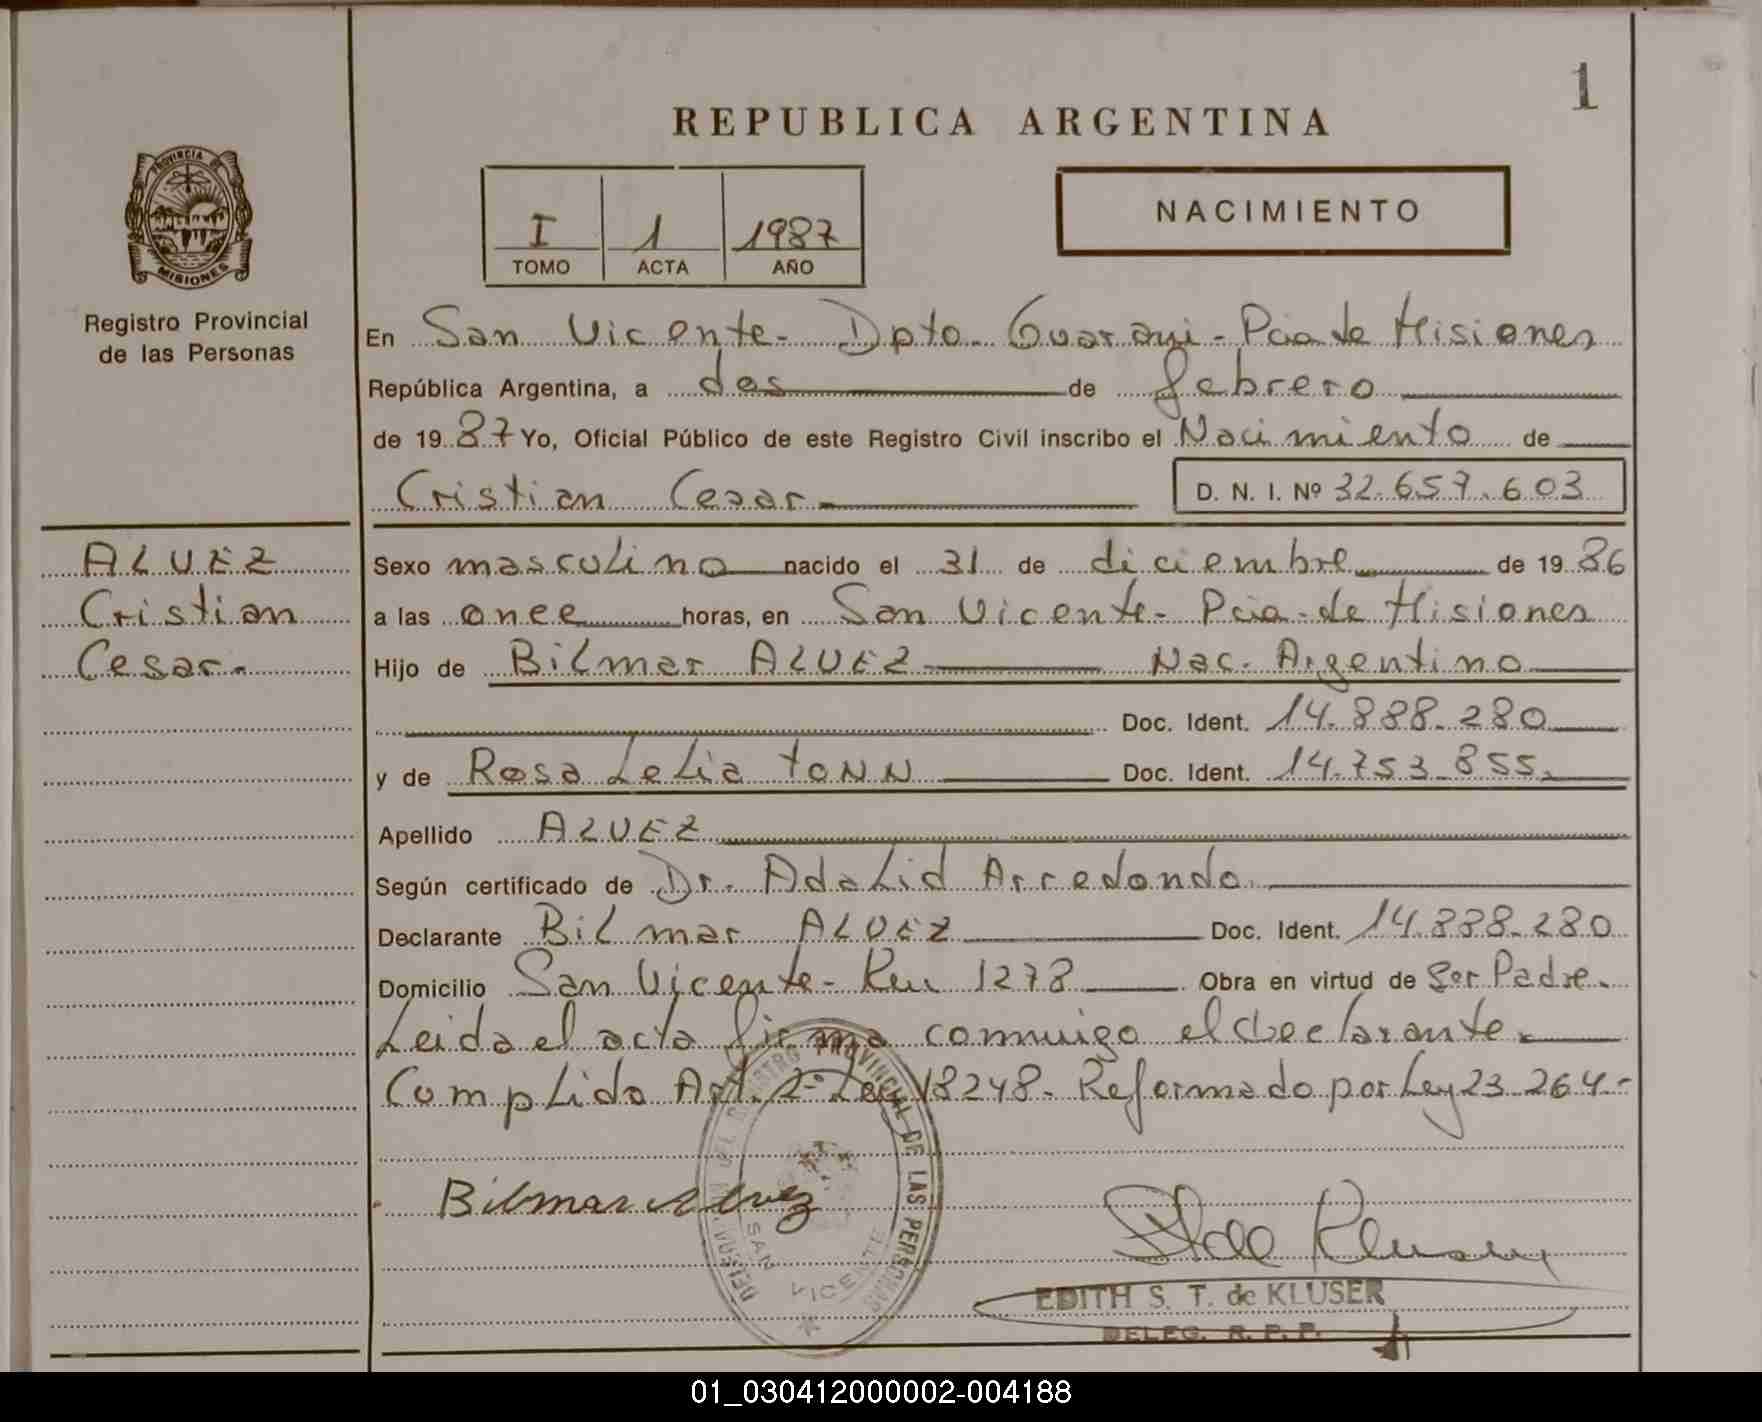 1
REPUBLICA ARGENTINA
PROVINCIA DE
MISIONES
Registro Provincial
de las Personas
I 1 1987
TOMO ACTA AÑO
NACIMIENTO
En San Vicente - Dpto. Guarani - Pcia de Misiones
República Argentina, a dos de febrero
de 1987 Yo, Oficial Público de este Registro Civil inscribo el Nacimiento de
Cristian Cesar D. N. I. Nº 32.657.603
ALVEZ
Cristian
Cesar.-
Sexo masculino nacido el 31 de diciembre de 1986
a las once horas, en San Vicente - Pcia. de Misiones
Hijo de Bilmar ALVEZ Nac. Argentino
Doc. Ident. 14.888.280
y de Rosa Lelia TONN Doc. Ident. 14.753.855.
Apellido ALVEZ
Según certificado de Dr. Adalid Arredondo
Declarante Bilmar ALVEZ Doc. Ident. 14.888.280
Domicilio San Vicente - Km 1278 Obra en virtud de Ser Padre.
Leida el acta firma conmigo el declarante.
Cumplido Art. 2º Ley 18248 - Reformado por Ley 23.264.-
Bilmar Alvez
REGISTRO PROVINCIAL DE LAS PERSONAS
SAN VICENTE
EDITH S. T. de KLUSER
DELEG. R. P. P.
01_030412000002-004188